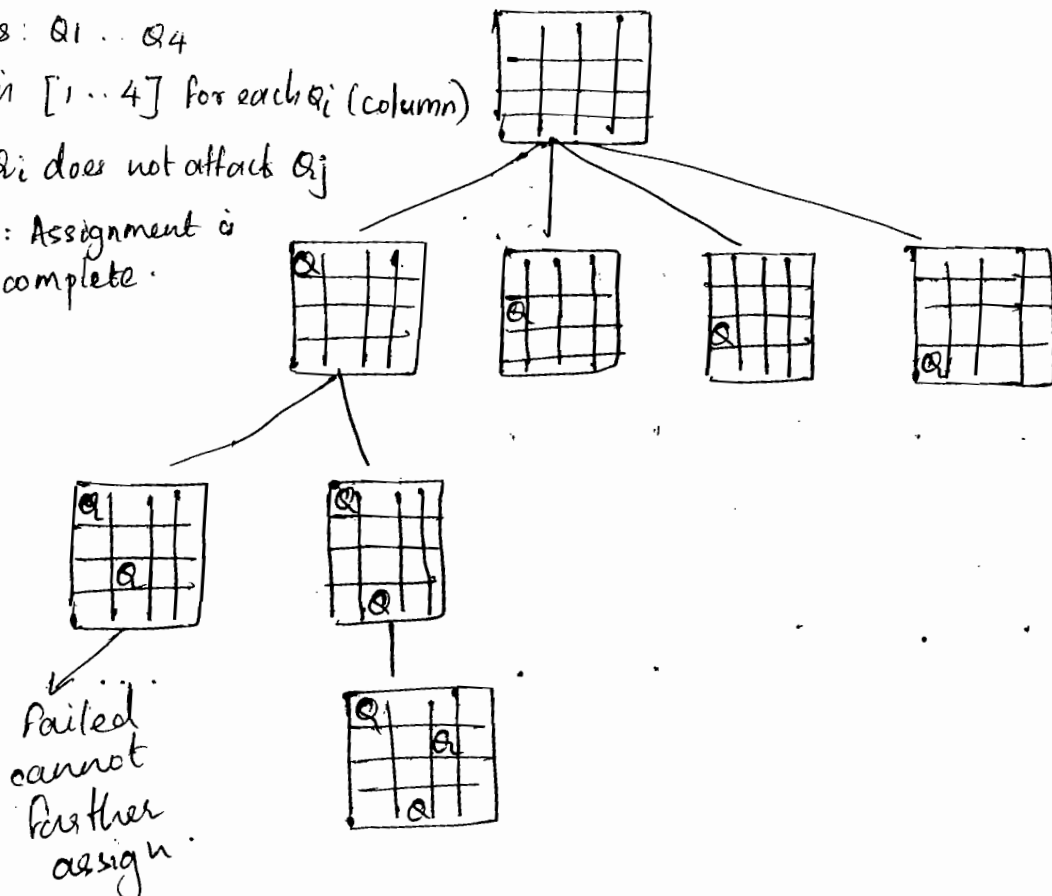 s: Q1 .. Q4
n [1 .. 4] for each Qi (column)
Qi does not attack Qj
: Assignment is
complete.
Q
Q
Q
Q
Q
Q
Q
Q
Q
Q
Q
...
failed
cannot
further
assign.